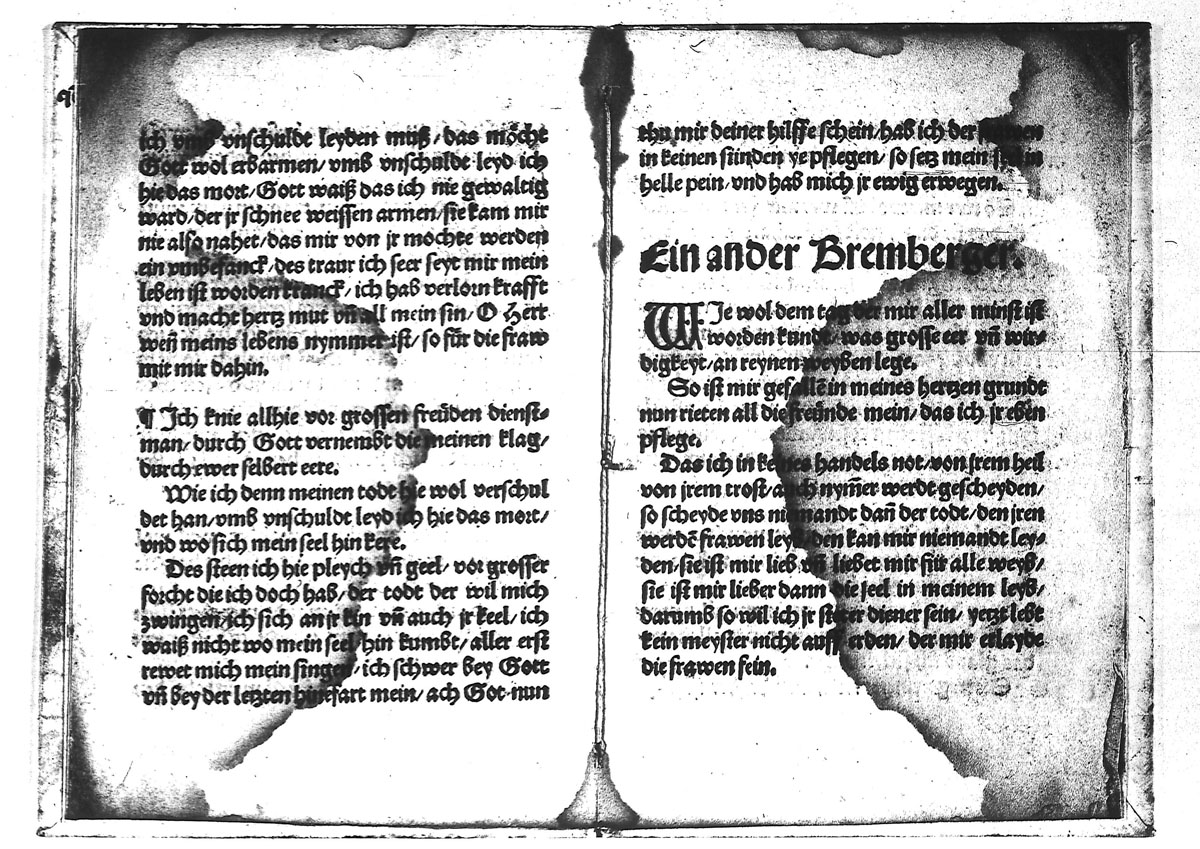 ich vmb vnschulde leyden müß/das möcht
Gott wol erbarmen/vmb vnschulde leyd ich
hie das mort/Gott waiß das ich nie gewaltig
ward/der jr schnee weissen armen/sie kam mir
nie also nahet/das mir von jr mochte werden
ein vmbefanck/des traur ich seer seyt mir mein
leben ist worden kranck/ich hab verlorn krafft
vnd macht hertz mut vñ all mein sin/O Herr
weñ meins lebens nymmer ist/so für die fraw
mit mir dahin.
¶ Ich knie allhie vor grossen freüden dienst-
man/durch Gott vernembt die meinen klag/
durch ewer selbert eere.
Wie ich denn meinen todt hie wol verschul
det han/vmb vnschuldt leyd ich hie das mort/
vnd wo sich mein seel hin kere.
Des steen ich hie pleych vñ geel/vor grosser
forcht die ich doch hab/der todt der wil mich
zwingen/ich sich an jr kin vñ auch jr keel/ich
waiß nicht wo mein seel hin kumbt/aller erst
rewet mich mein singen/ich schwer bey Gott
vñ bey der letzten hinefart mein/ach Got nun
thu mir deiner hilffe schein/hab ich der
in keinen sünden ye pflegen/so setz mein
helle pein/vnd hab mich jr ewig erwegen.
Ein ander Bremberger.
WIe wol dem tag der mir aller minst ist
worden kundt/was grosse eer vñ wir-
digkeyt/an reynen weyben lege.
So ist mir gefallẽ in meines hertzen grundt
nun rieten all die freünde mein/das ich jr eben
pflege.
Das ich in keines handels not/von jrem heil
von jrem trost/auch nym̃er werdt gescheyden/
so scheyde vns niemandt dañ der todt/den jren
werdẽ frawen leyb/den kan mir niemandt ley-
den/sie ist mir lieb vñ liebet mir für alle weyb/
sie ist mir lieber dann die seel in meinem leyb/
darumb so wil ich jr steter diener sein/yetzt lebt
kein meyster nicht auff erden/der mir erlayde
die frawen fein.